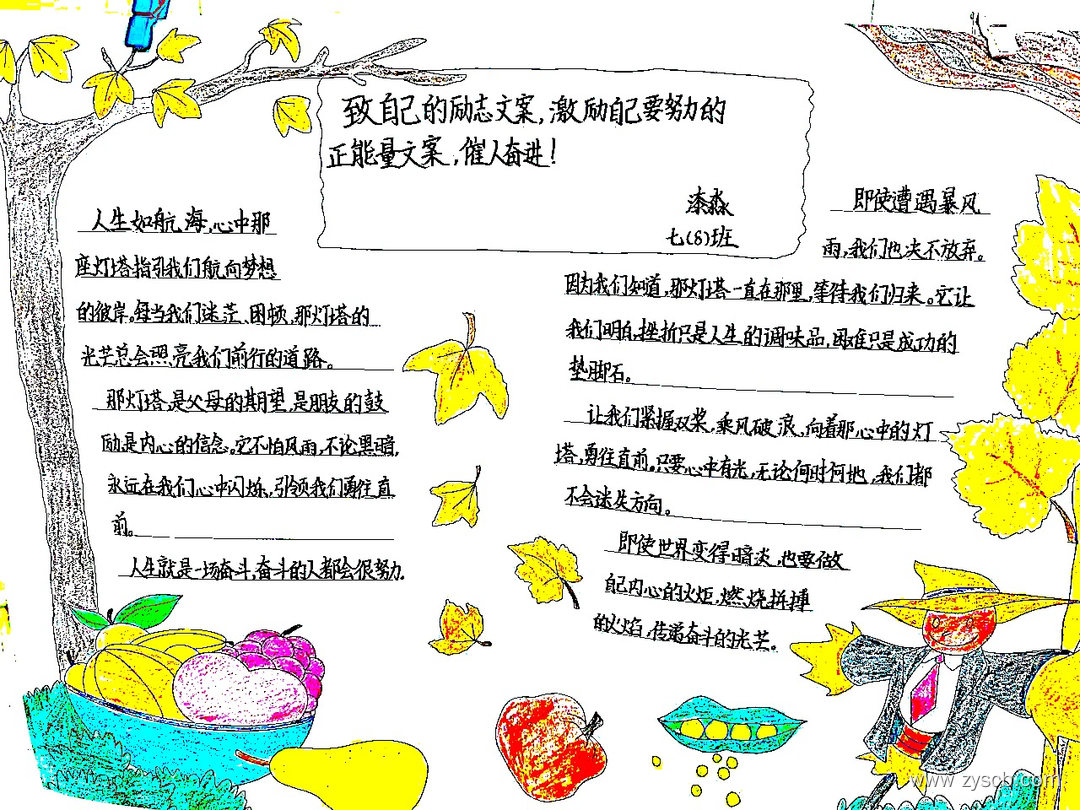 致自己的励志文案,激励自己要努力的
正能量文案,催人奋进!
漆淼
七(8)班
人生如航海,心中那
座灯塔指引我们航向梦想
的彼岸。每当我们迷茫、困顿,那灯塔的
光芒总会照亮我们前行的道路。
那灯塔,是父母的期望,是朋友的鼓
励是内心的信念。它不怕风雨,不论黑暗,
永远在我们心中闪烁,引领我们勇往直
前。
人生就是一场奋斗,奋斗的人都会很努力.
即使遭遇暴风
雨,我们也决不放弃。
因为我们知道,那灯塔一直在那里,等待我们归来。它让
我们明白,挫折只是人生的调味品,困难只是成功的
垫脚石。
让我们紧握双桨,乘风破浪,向着那心中的灯
塔,勇往直前。只要心中有光,无论何时何地,我们都
不会迷失方向。
即使世界变得暗淡,也要做
自己内心的火炬,燃烧拼搏
的火焰,传递奋斗的光芒。
www.zysob.com